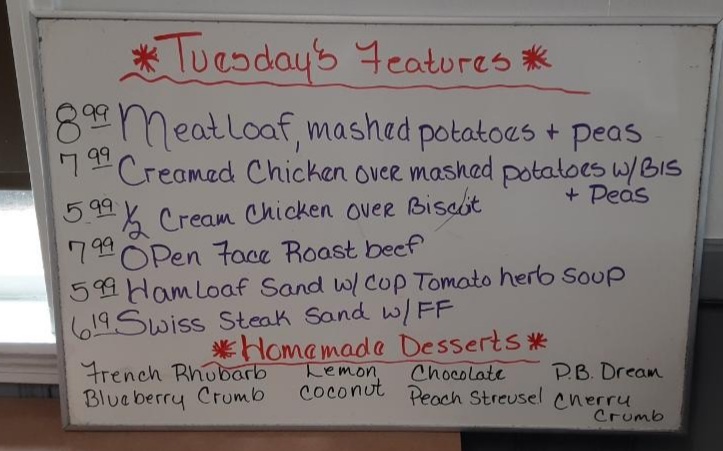 *Tuesday's Features*
8.99 Meatloaf, mashed potatoes + peas
7 99 Creamed Chicken over mashed potatoes w/BIS
+ Peas
5.99 1/2 Cream Chicken over Biscuit
7 99 Open Face Roast beef
5 99 Hamloaf Sand w/ cup Tomato herb soup
6.19 Swiss Steak Sand w/ FF
*Homemade Desserts*
French Rhubarb Lemon Chocolate P.B. Dream
Blueberry Crumb Coconut Peach Streusel Cherry
Crumb